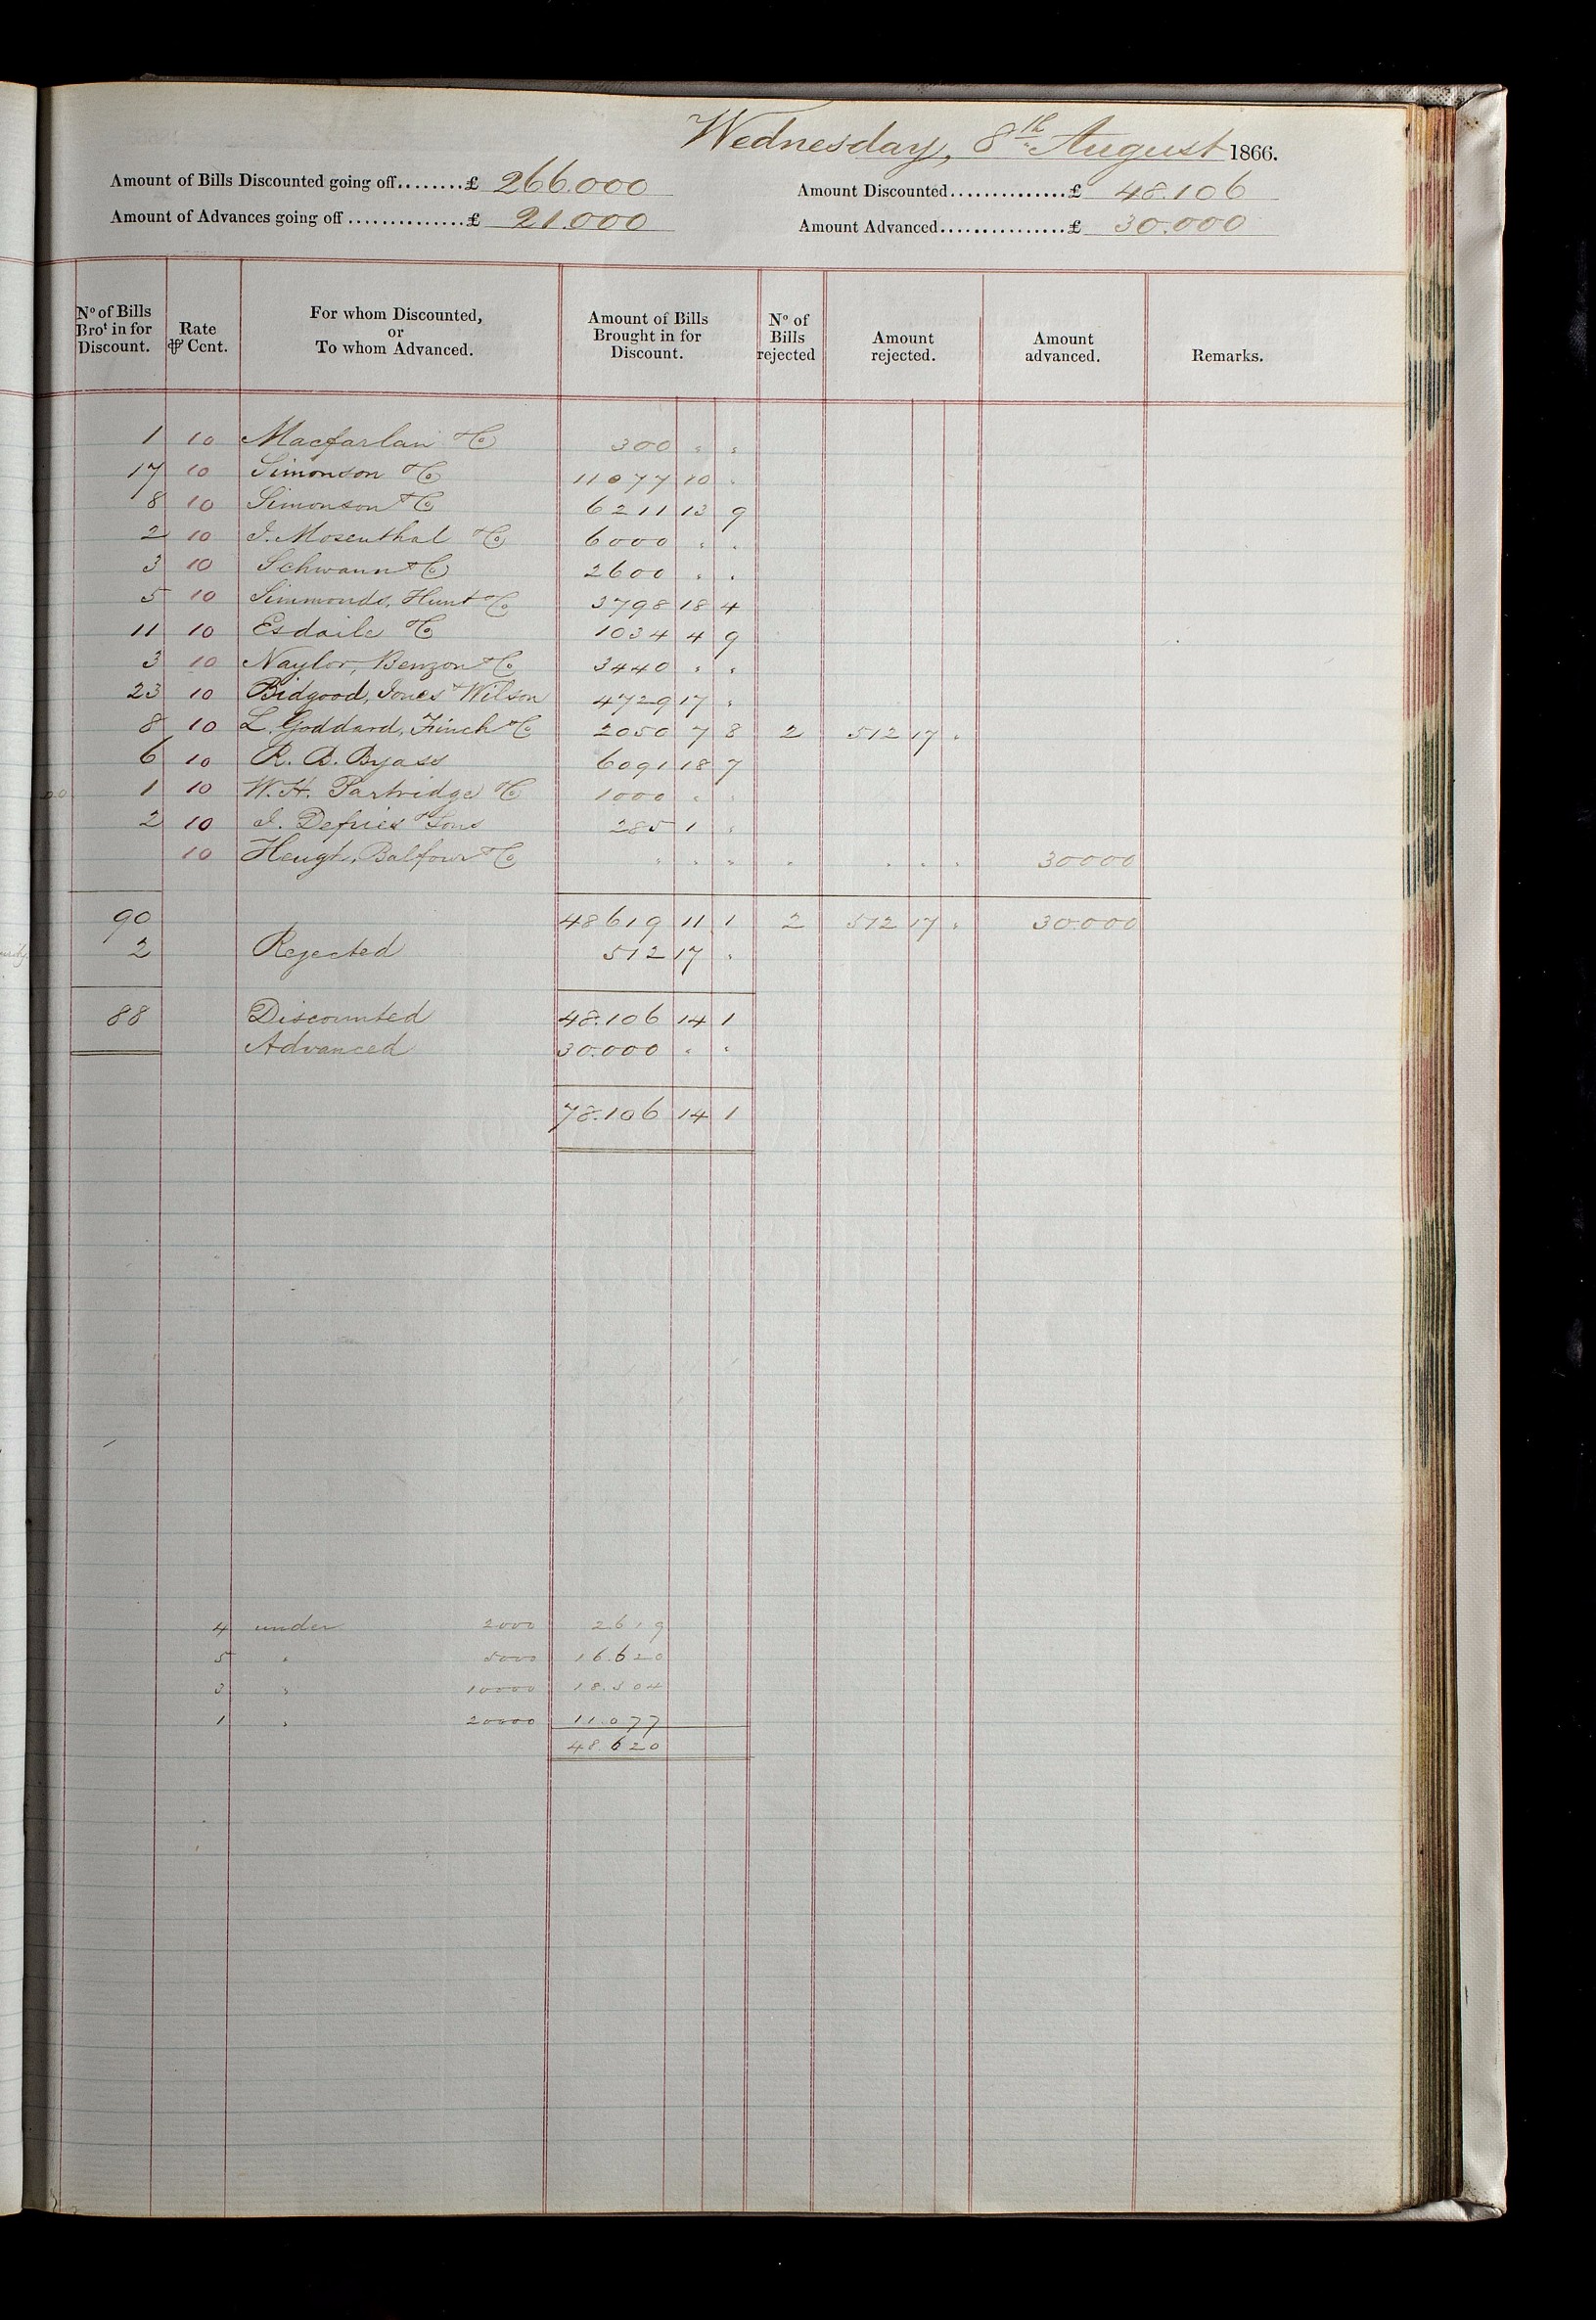 Wednesday, 8th August 1866.
Amount of Bills Discounted going off........£ 266.000
Amount Discounted..............£ 48.106
Amount of Advances going off..............£ 21.000
Amount Advanced...............£ 30.000
No of Bills Brot in for Discount. | Rate ⅌ Cent. | For whom Discounted, or To whom Advanced. | Amount of Bills Brought in for Discount. | No of Bills rejected | Amount rejected. | Amount advanced. | Remarks.
1 10 Macfarlan & Co 300 " "
17 10 Simonson & Co 11077 10 "
8 10 Simonson & Co 6211 13 9
2 10 I. Mosenthal & Co 6000 " "
3 10 Schwann & Co 2600 " "
5 10 Simmonds, Hunt & Co 3798 18 4
11 10 Esdaile & Co 1034 4 9
3 10 Naylor, Benzon & Co 3440 " "
23 10 Bidgood, Jones & Wilson 4729 17 "
8 10 L. Goddard, Finch & Co 2050 7 8 2 512 17 "
6 10 R. B. Byass 6091 18 7
1 10 W. H. Partridge & Co 1000 " "
2 10 I. Defries & Sons 285 1 "
10 Heugh, Balfour & Co " " " " " " " 30000
90 48619 11 1 2 512 17 " 30.000
2 Rejected 512 17 "
88 Discounted 48.106 14 1
Advanced 30.000 " "
78.106 14 1
4 under 2000 2619
5 " 5000 16.620
3 " 10000 18.304
1 " 20000 11.077
48.620